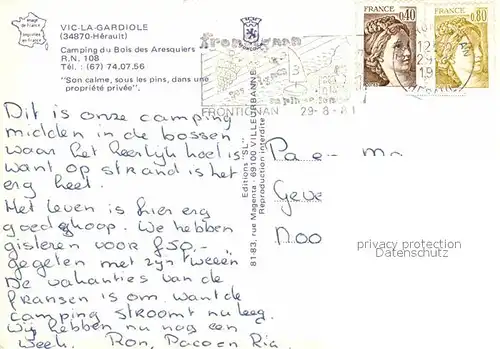 Image de France
Imprimé en France
VIC-LA-GARDIOLE
(34870-Hérault)
Camping du Bois des Aresquiers
R.N. 108
Tél. : (67) 74.07.56
"Son calme, sous les pins, dans une
propriété privée".
Frontignan
FRONTIGNAN 29-8-81
FRANCE 0,40
FRANCE 0,80
Dit is onze camping
midden in de bossen
waar het heerlijk koel is
want op strand is het
erg heet.
Het leven is hier erg
goedkoop. We hebben
gisteren voor f50,-
gegeten met z'n tweeën
De vakanties van de
fransen is om want de
camping stroomt nu leeg.
Wij hebben nu nog een
week. Ron, Paco en Ria
Editions "SL"
81-83, rue Magenta - 69100 VILLEURBANNE
Reproduction interdite
Pa e- m
Geve
Noo
privacy protection
Datenschutz